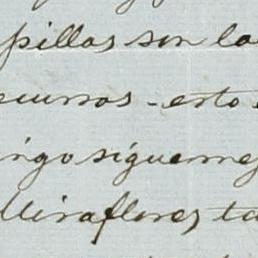 pillas son la
cursos - esto
ingo siguenme
Miraflores ta